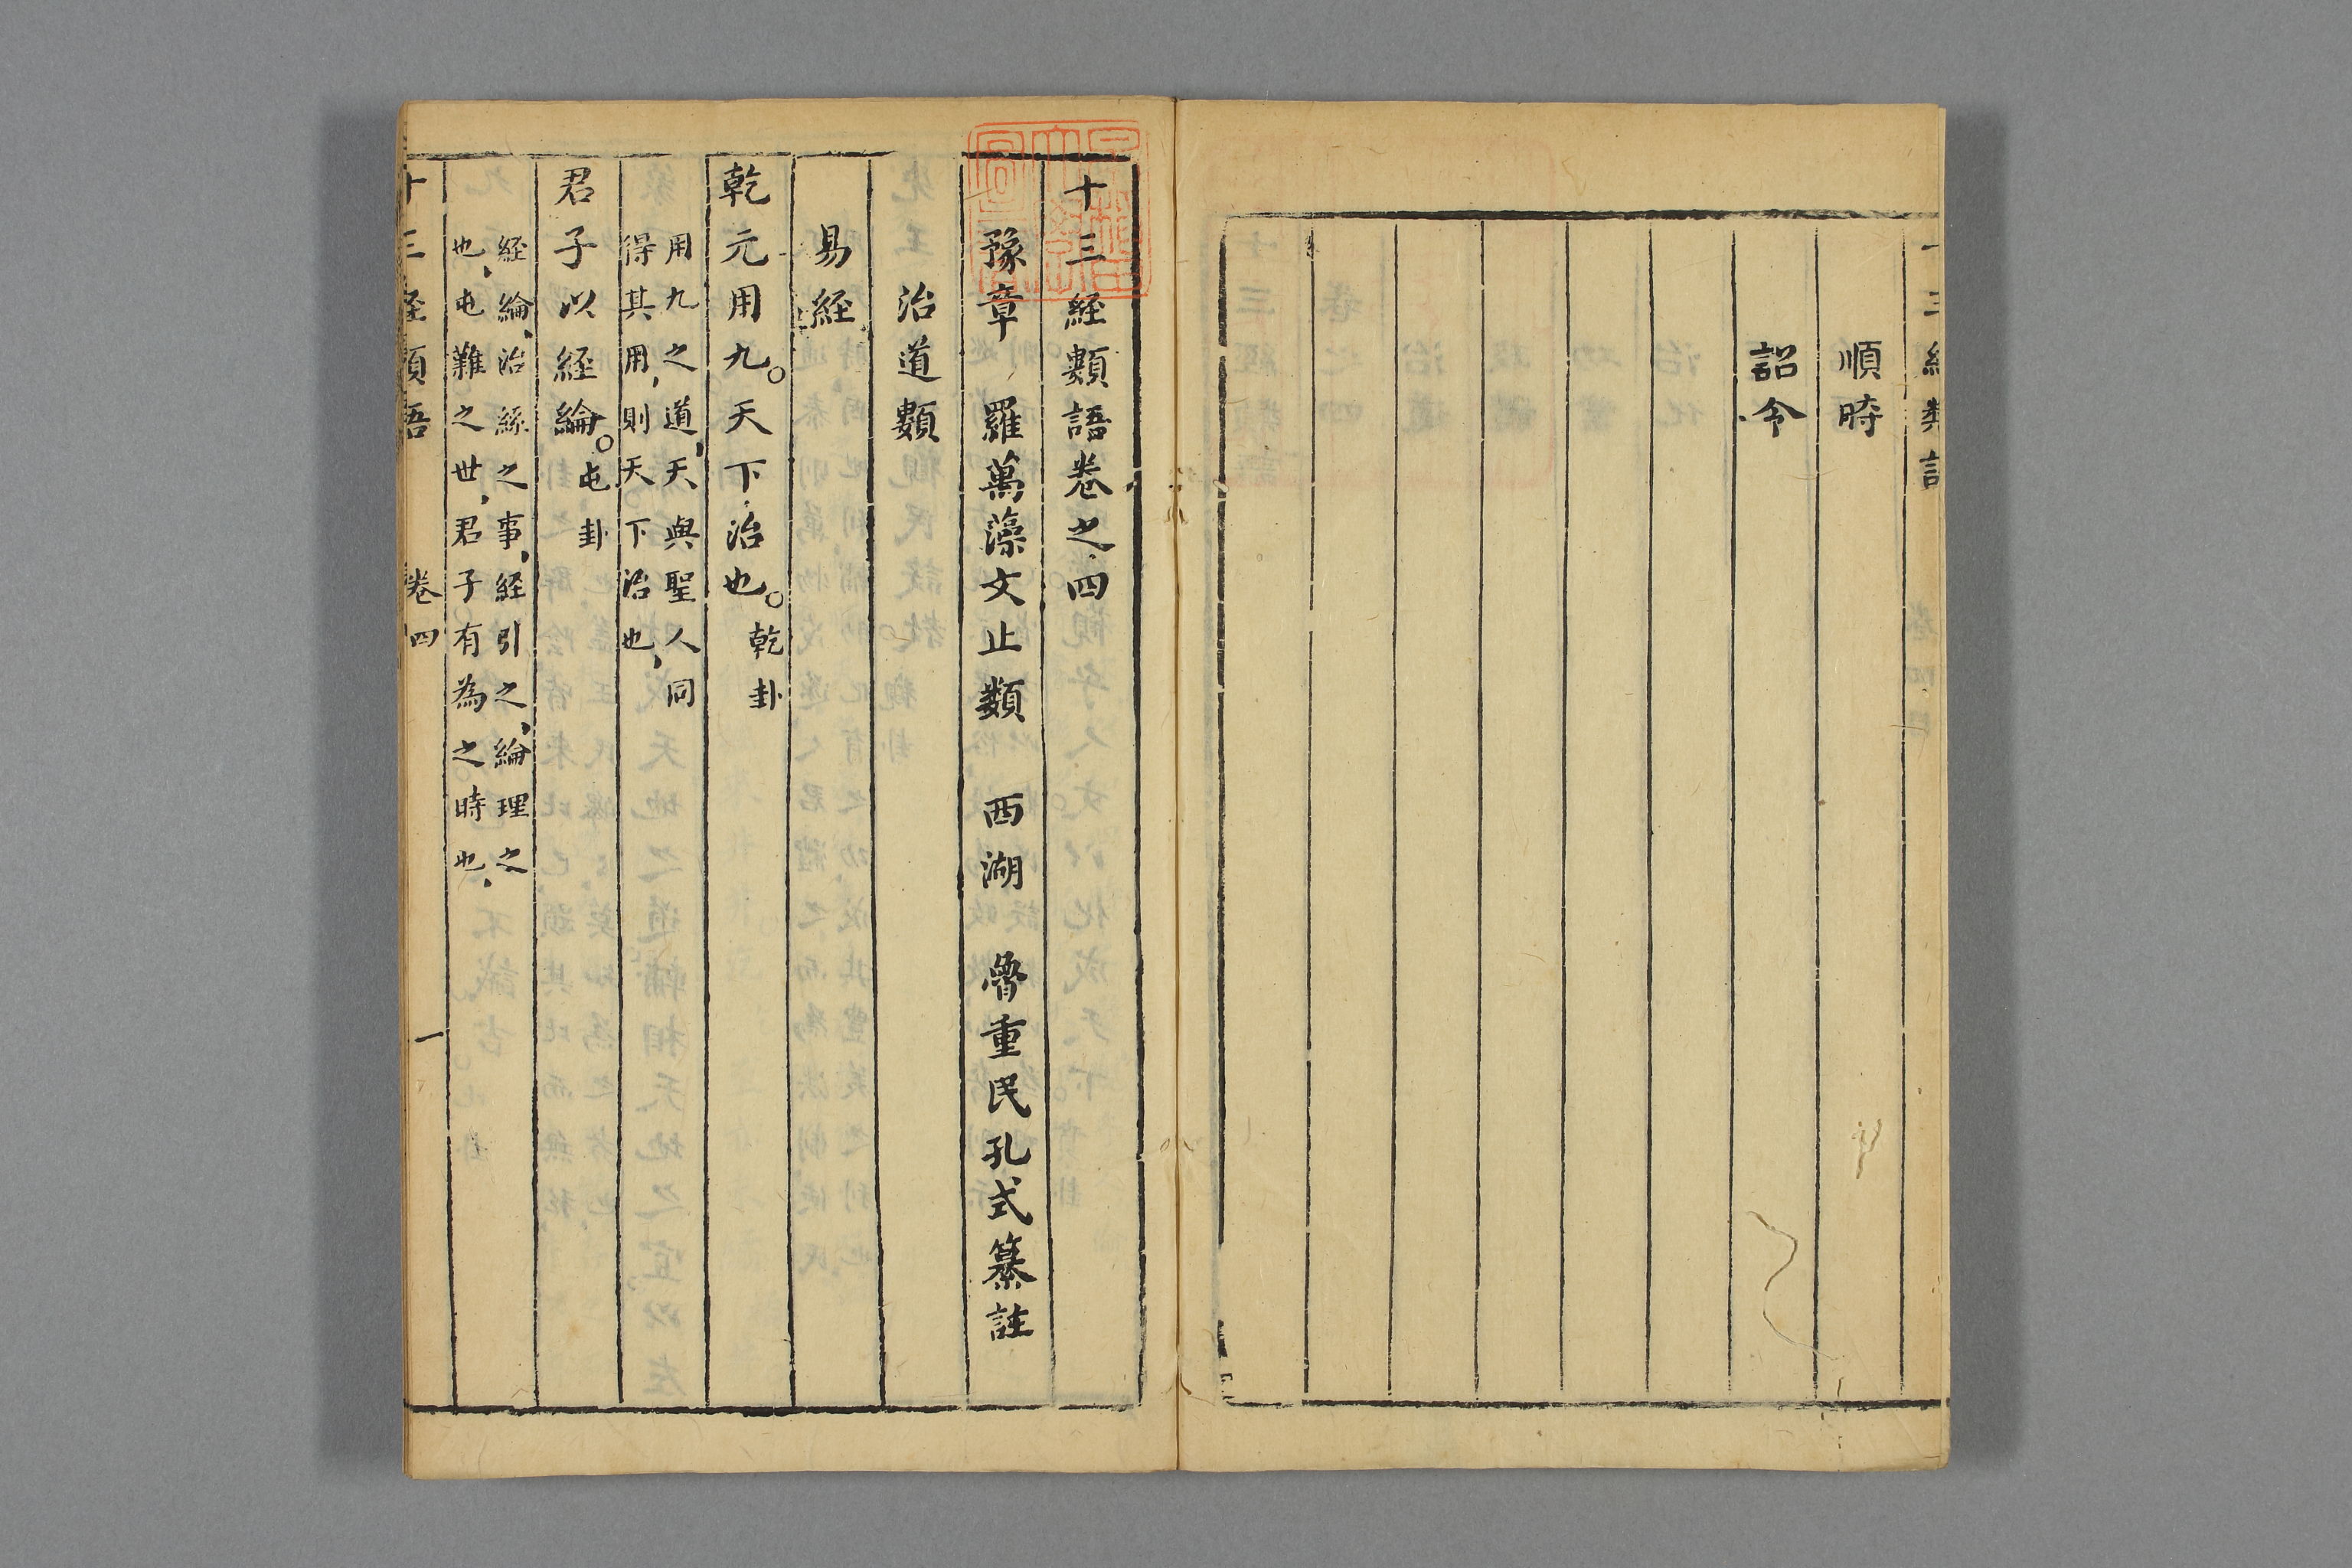 十三經類語
順時
詔令
十三經類語卷之四
豫章 羅萬藻文止類 西湖 魯重民孔式纂註
治道類
易經
乾元用九。天下治也。乾卦
用九之道，天與聖人同
得其用，則天下治也，
君子以經綸。屯卦
經綸，治絲之事，經引之，綸理之
也，屯難之世，君子有為之時也，
十三經類語 卷四 一